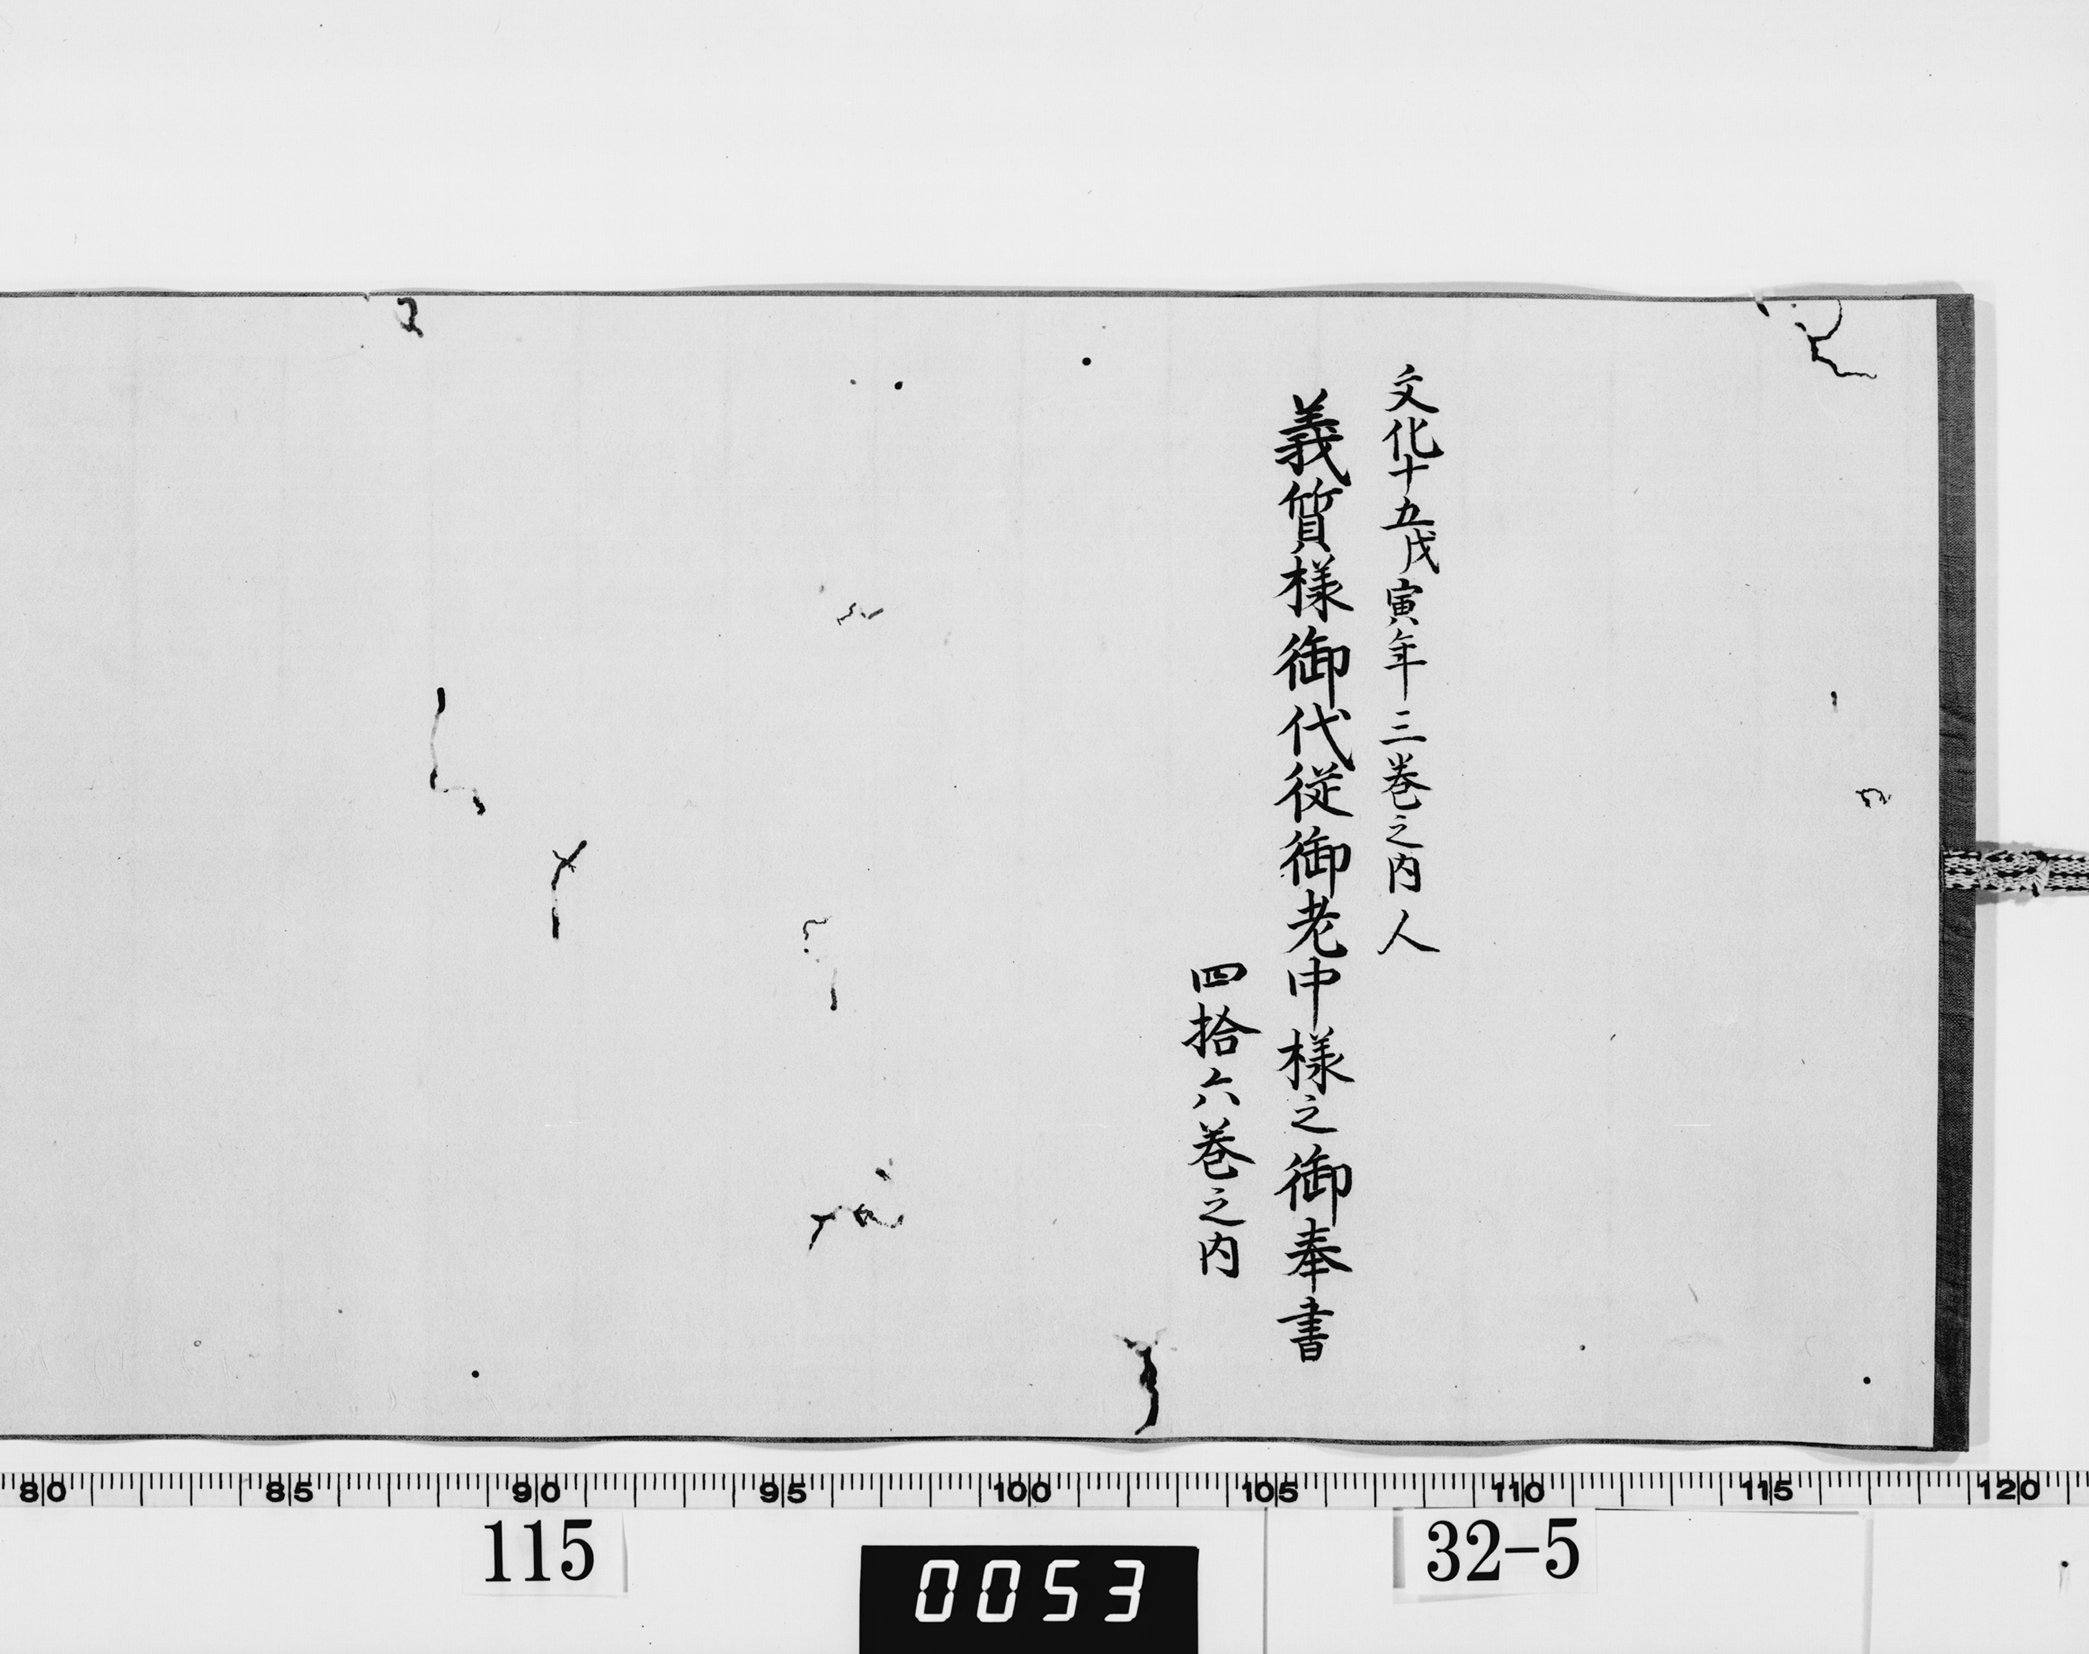 文化十五戊寅年三巻之内人
義質様御代従御老中様之御奉書
四拾六巻之内
80 85 90 95 100 105 110 115 120
115
0053
32-5